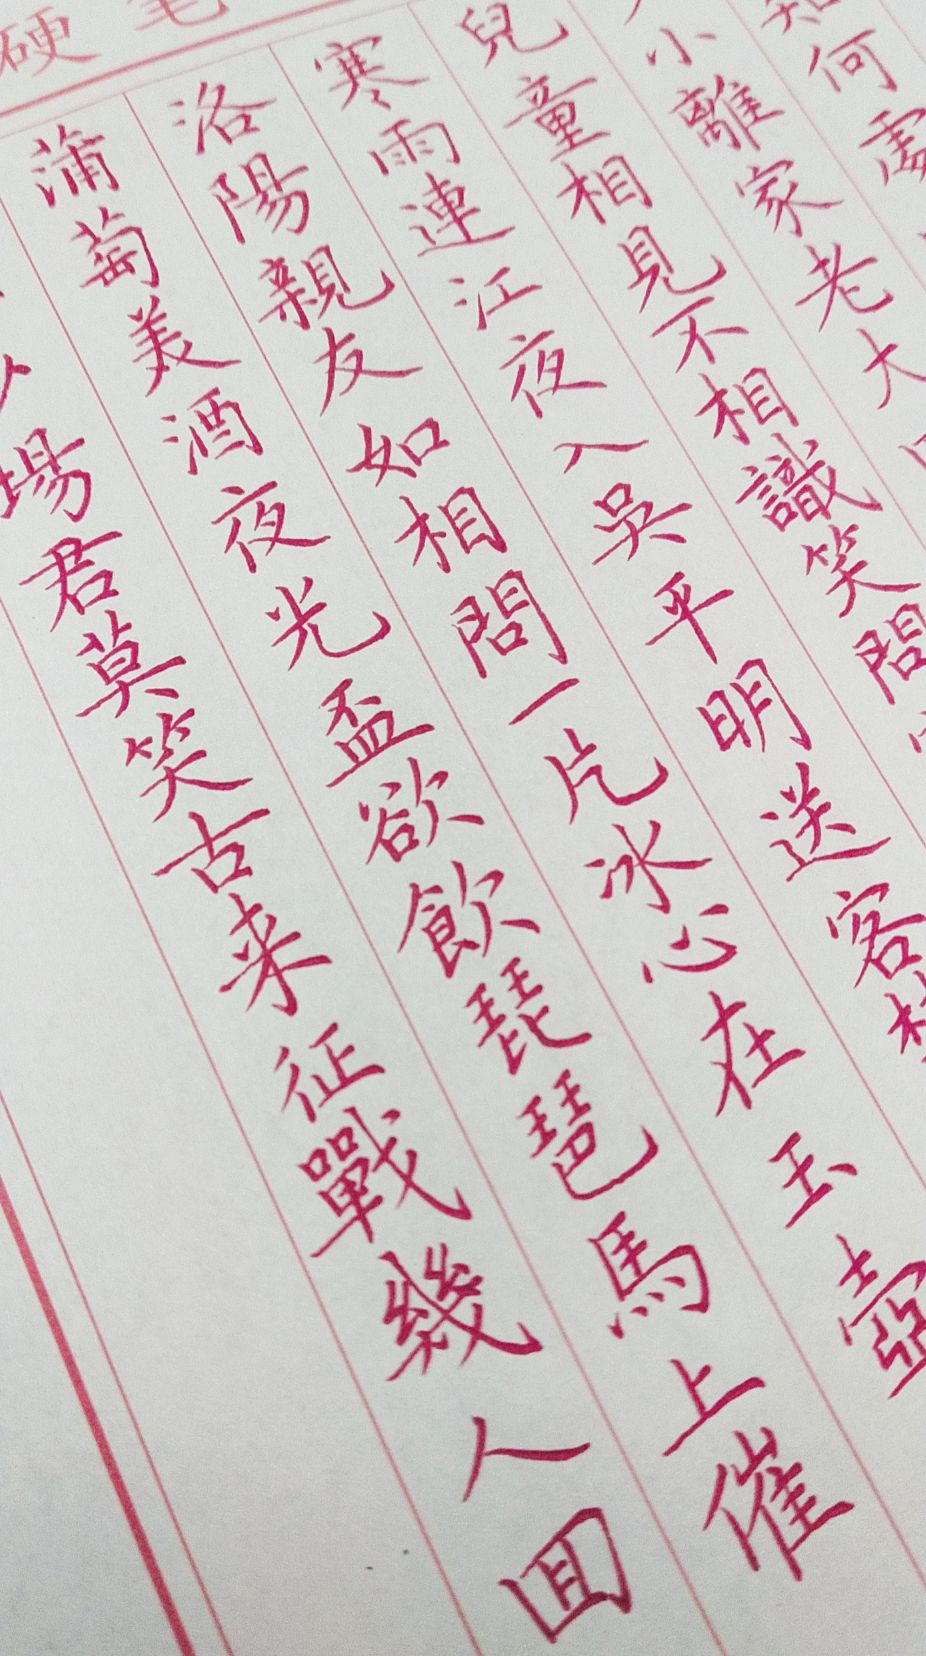 硬
何處
小離家老大
兒童相見不相識笑問
寒雨連江夜入吳平明送客
洛陽親友如相問一片冰心在玉壺
蒲萄美酒夜光盃欲飲琵琶馬上催
場君莫笑古来征戰幾人囬